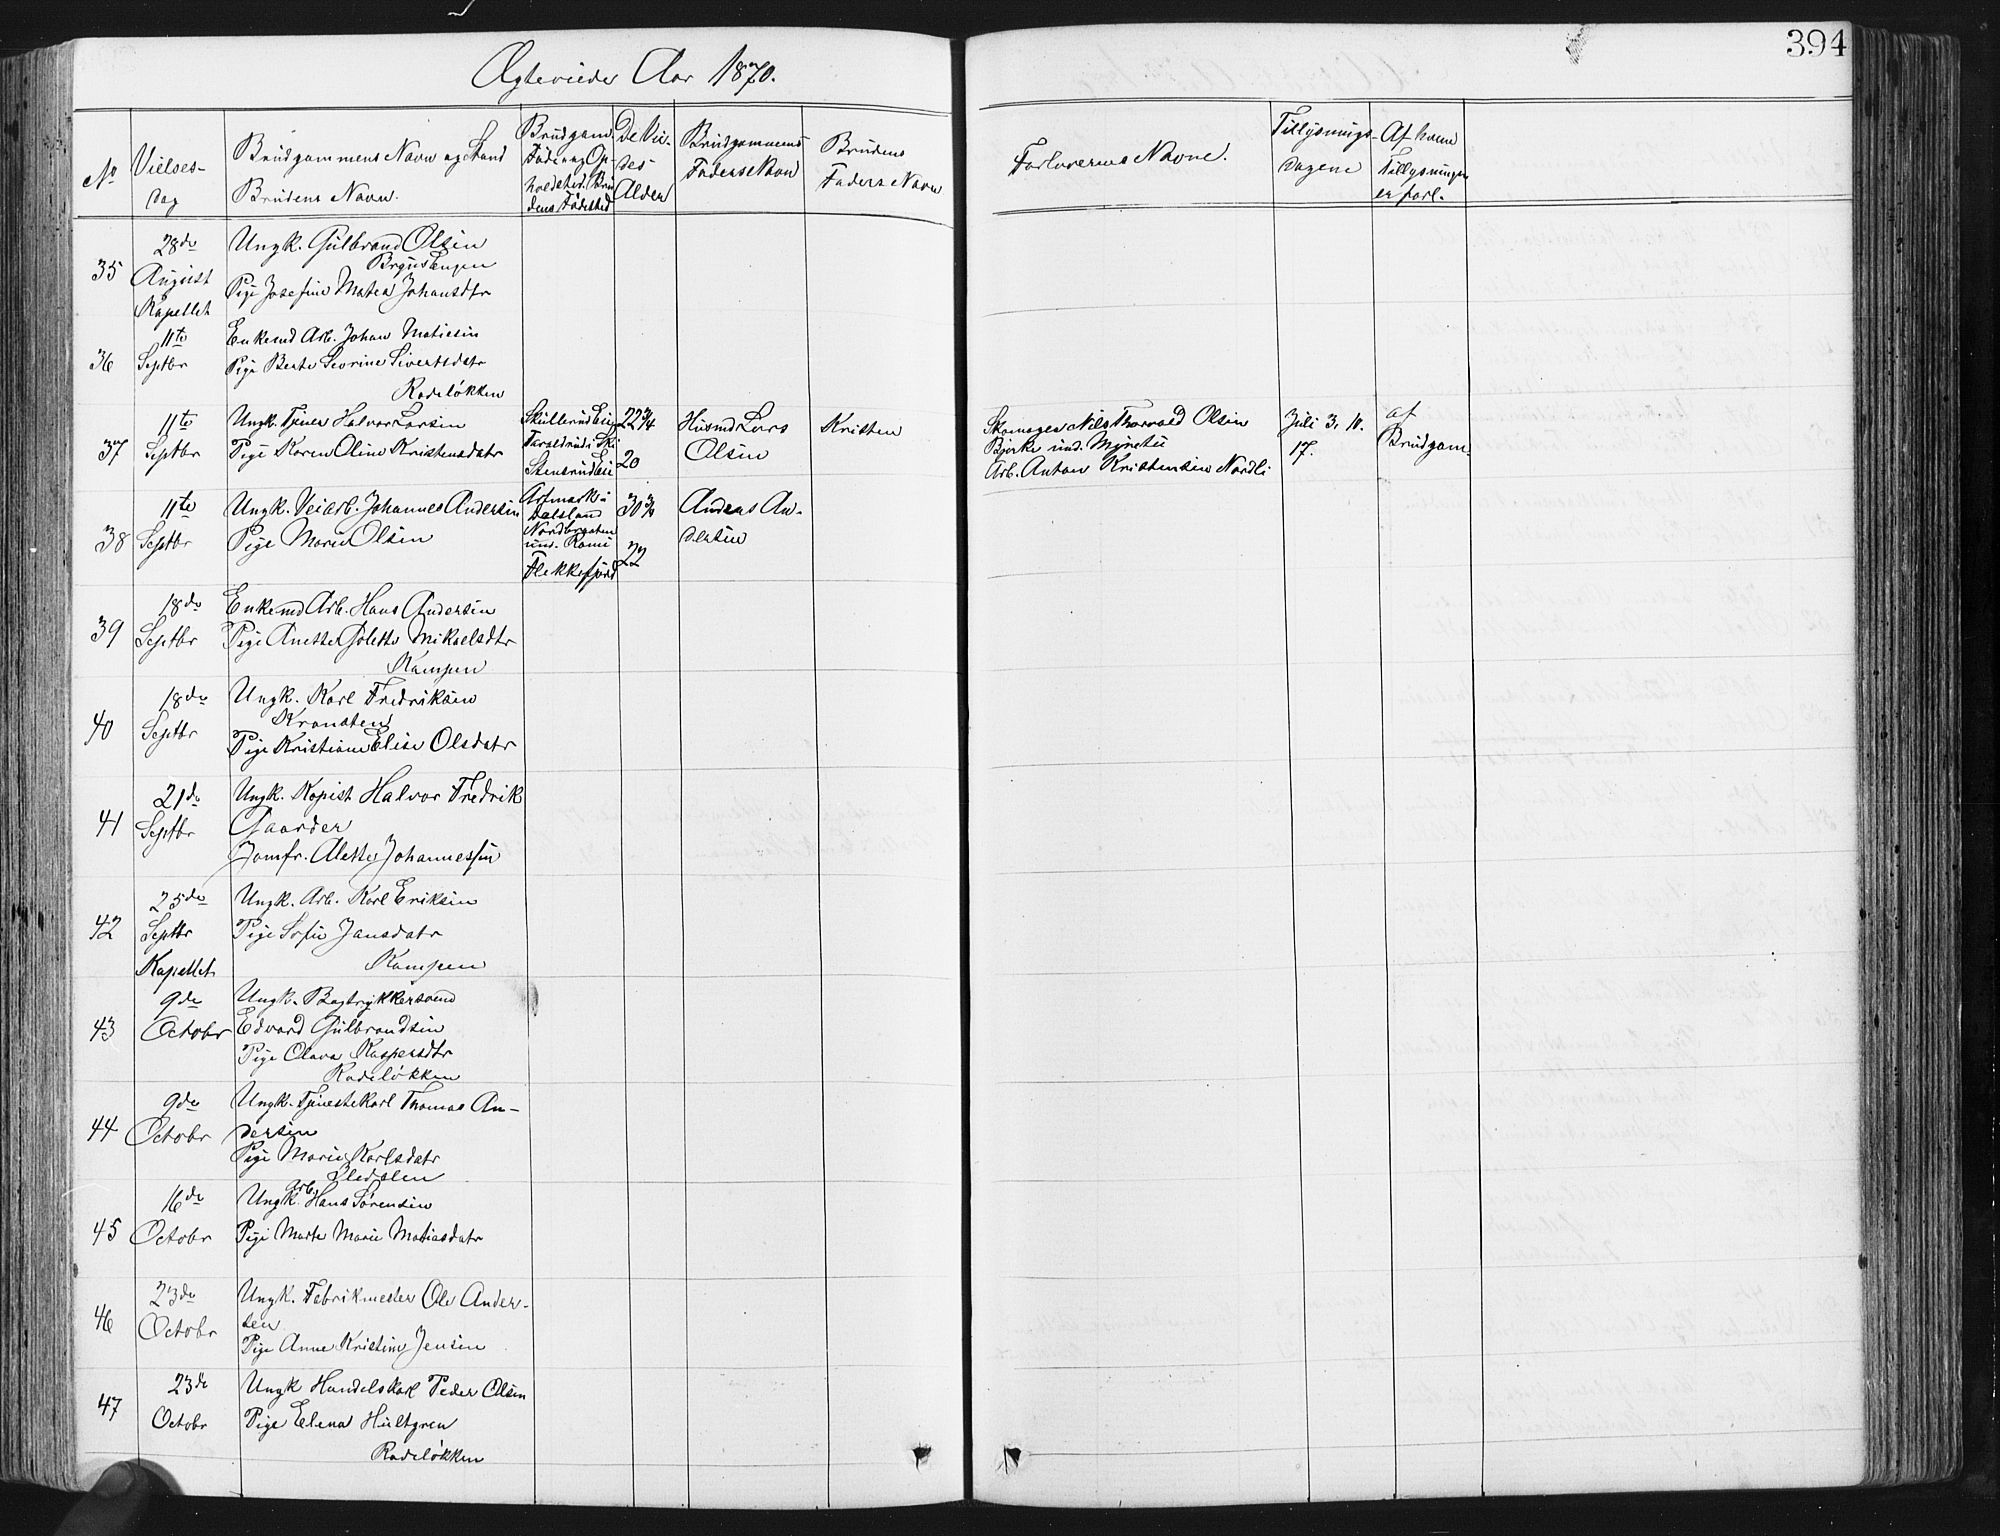 Ægteviede Aar 1870.
394
No
Vielses-
dag
Brudgommens Navn og Stand
Brudens Navn.
Brudgom.
Føde og Op-
holdsted. Bru
dens Fødested
De Vie-
des
Alder
Brudgommens
Faders Navn
Brudens
Faders Navn
Forlovernes Navne.
Tillysnings-
dagene
Af hvem
Tillysningen
er forl.
35
28de
August
Kapellet
Ungk. Gulbrand Olsen
Pige Josefine Matea Johansdtr
36
11te
Septbr
Enkemd Arb. Johan Matiesen
Pige Berte Severine Sivertsdatr
Rodeløkken
37
11te
Septbr
Ungk. Tjener Halvor Larsen
Pige Karen Oline Kristensdatr
Skullerud Eie
Taraldrud i Ski
Stensrud Eie
22 3/4
20
Husmd Lars
Olsen
Kristen
Skomager Nils Thorvald Olsen
Bjerke und.
Arb. Anton Kristensen Nordli
Juli 3, 10.
17.
af
Brudgom.
38
11te
Septbr
Ungk. Veiarb. Johannes Andersen
Pige Marie Olsen
Artmark i
Dalsland
Flekkefjord
30 3/4
22
Andreas An-
dersen
39
18de
Septbr
Enkemd Arb. Hans Andersen
Pige Anette Golette Mikaelsdtr
Kampen
40
18de
Septbr
Ungk. Karl Fredriksen
Kransten
Pige Kristiane Elise Olsdatr
41
21de
Septbr
Ungk. Kopist Halvor Fredrik
Gaarder
Jomfr. Alette Johannessen
42
25de
Septbr
Kapellet
Ungk. Arb. Karl Eriksen
Pige Sofie Jansdatr
Kampen
43
9de
Octobr
Ungk. Bogtrykkersvend
Edvard Gulbrandsen
Pige Olava Kaspersdtr
Rodeløkken
44
9de
Octobr
Ungk. Tjenestekarl Thomas An-
dersen
Pige Marie Karlsdatr
45
16de
Octobr
Arb.
Ungk. Hans Sørensen
Pige Marte Marie Matiasdatr
46
23de
Octobr
Ungk. Fabrikmester Ole Ander-
sen
Pige Anne Kristine Jensen
47
23de
Octobr
Ungk Handelskarl Peder Olsen
Pige Elena Hultgren
Rodeløkken